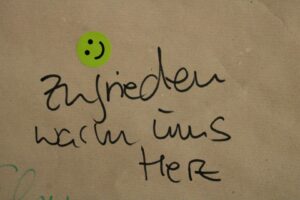 Zufrieden
warm ums
Herz